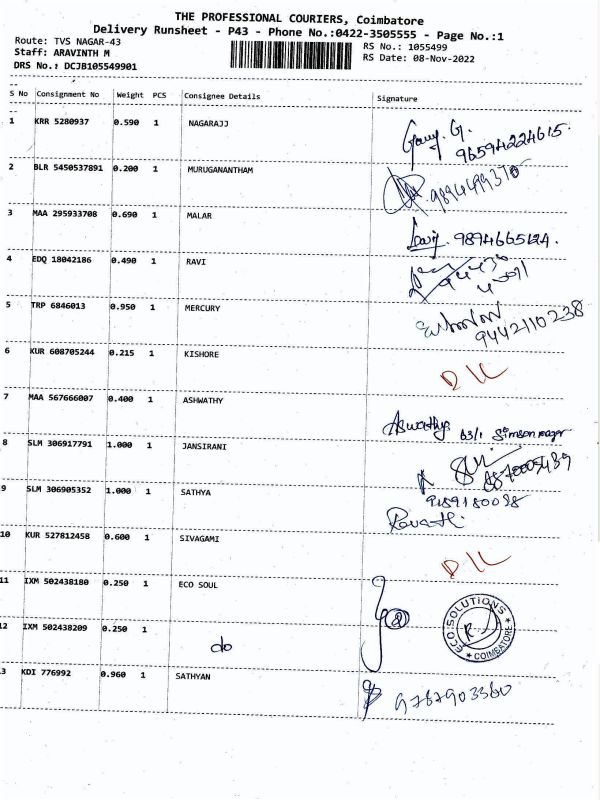 THE PROFESSIONAL COURIERS, Coimbatore
Delivery Runsheet - P43 - Phone No.:0422-3505555 - Page No.:1
Route: TVS NAGAR-43
RS No.: 1055499
Staff: ARAVINTH M
RS Date: 08-Nov-2022
DRS No.: DCJB105549901
S No Consignment No Weight PCS Consignee Details Signature
1 KRR 5280937 0.590 1 NAGARAJJ
96594224615.
2 BLR 5450537891 0.200 1 MURUGANANTHAM
3 MAA 295933708 0.690 1 MALAR
9894665124.
4 EDQ 18042186 0.490 1 RAVI
5 TRP 6846013 0.950 1 MERCURY
9442110238
6 KUR 608705244 0.215 1 KISHORE
D/L
7 MAA 567666007 0.400 1 ASHWATHY
Aswathy 63/1 Simson nagar
8 SLM 306917791 1.000 1 JANSIRANI
9 SLM 306905352 1.000 1 SATHYA
Revathi
10 KUR 527812458 0.600 1 SIVAGAMI
D/L
11 IXM 502438180 0.250 1 ECO SOUL
ECO SOLUTIONS
★ COIMBATORE ★
12 IXM 502438209 0.250 1 do
3 KDI 776992 0.960 1 SATHYAN
9787903380